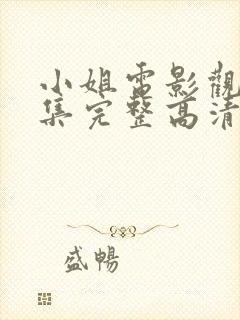 小姐電影觀
集完整高清
盛暢